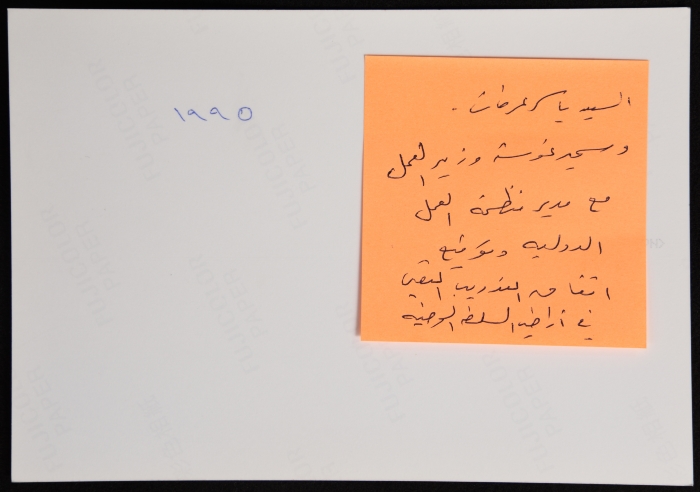 ١٩٩٥
السيد ياسر عرفات .
وسمير غوشة وزير العمل
مع مدير منظمة العمل
الدولية وتوقيع
اتفاق التدريب المهني
في أراضي السلطة الوطنية
FUJICOLOR
PAPER